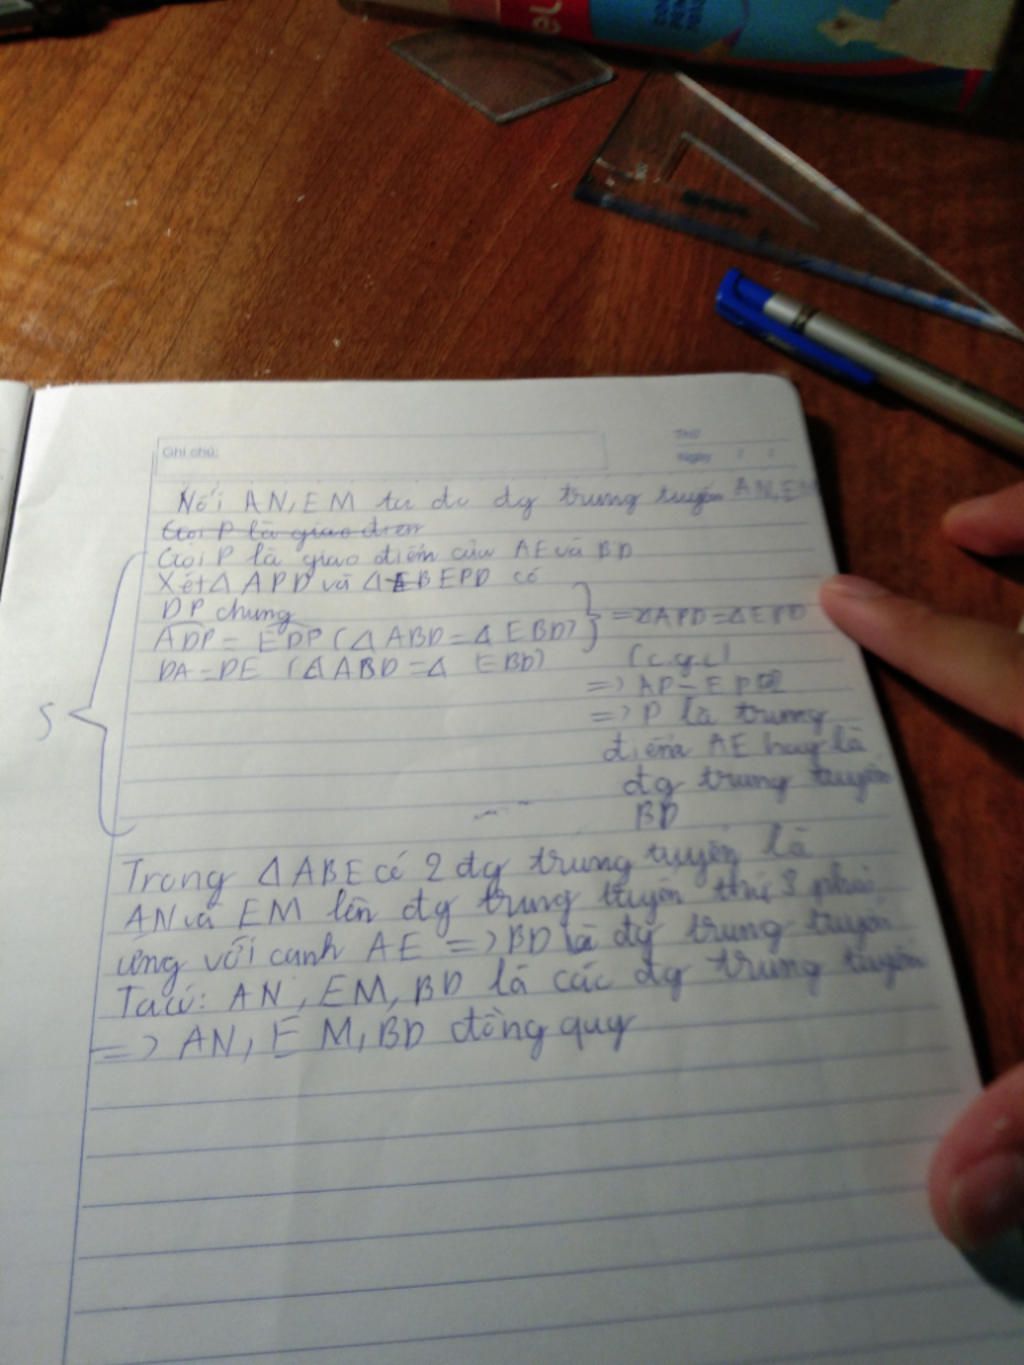 el
Ghi chú:
Thứ
Ngày
Nối AN, EM ta dc đg trung tuyến AN, EM
Gọi P là giao điểm
Gọi P là giao điểm của AE và BD
Xét Δ APD và Δ EPD có
DP chung
ADP = EDP (Δ ABD = Δ EBD)
DA = DE (Δ ABD = Δ EBD)
=> Δ APD = Δ EPD
(c.g.c)
=> AP = EP
=> P là trung
điểm AE hay là
đg trung tuyến
BD
S
Trong Δ ABE có 2 đg trung tuyến là
AN và EM lên đg trung tuyến thứ 3 phải
ứng với canh AE => BD là đg trung tuyến
Ta có: AN, EM, BD là các đg trung tuyến
=> AN, EM, BD đồng quy